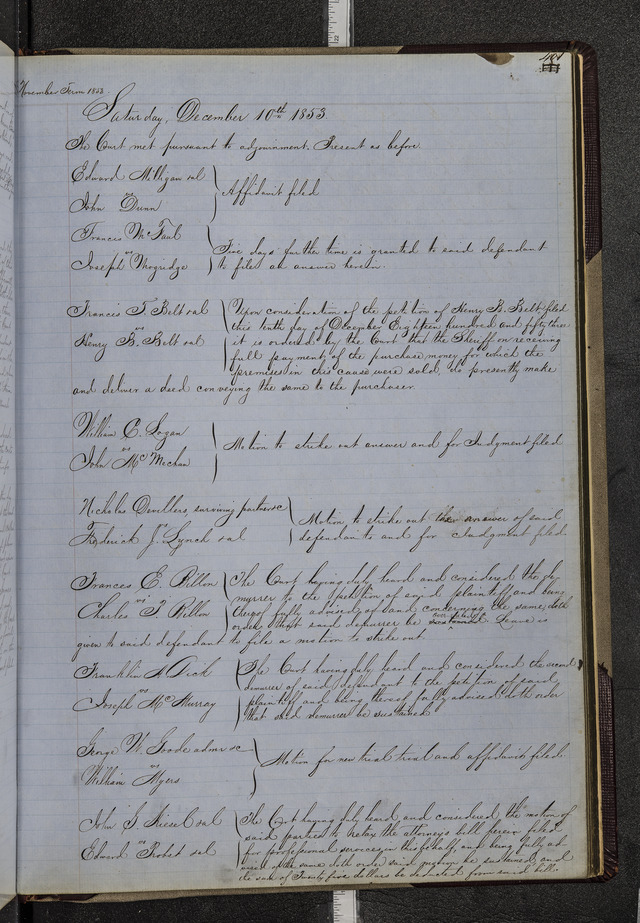 November Term 1853
Saturday, December 10th 1853.
The Court met pursuant to adjournment. Present as before.
Edward Milligan et al
vs
John Dunn
Affidavit filed
Francis McFaul
vs
Joseph Mogridge
Five days further time is granted to said defendant
to file an answer herein.
Francis T. Belt et al
vs
Henry B. Belt et al
Upon consideration of the petition of Henry B. Belt filed
this tenth day of December Eighteen hundred and fifty three
it is ordered by the Court that the Sheriff on receiving
full payment of the purchase money for which the
premises in this cause were sold, do presently make
and deliver a deed conveying the same to the purchaser.
William C. Logan
vs
John McMechan
Motion to strike out answer and for Judgment filed
Nicholas Devillers, surviving partner &c
vs
Frederick J. Lynch et al
Motion to strike out the answer of said
defendants and for Judgment filed.
Frances E. Billon
vs
Charles F. Billon
The Court having duly heard and considered the de-
murrer to the petition of said plaintiff and being
thereof fully advised of and concerning the same, doth
order that said demurrer be overruled Leave is
given to said defendant to file a motion to strike out.
Franklin A. Dick
vs
Joseph McMurray
The Court having duly heard and considered the second
demurrer of said defendant to the petition of said
plaintiff and being thereof fully advised doth order
that said demurrer be sustained
George W. Goode admr &c
vs
William Myers
Motion for new trial and affidavit filed.
John S. et al
vs
Edward Probst et al
The Court having duly heard and considered the motion of
said parties to retax the attorneys bill herein filed
for professional services in this behalf and being fully ad-
vised of the same doth order said motion be sustained, and
the sum of Twenty five dollars be deducted from said bill.